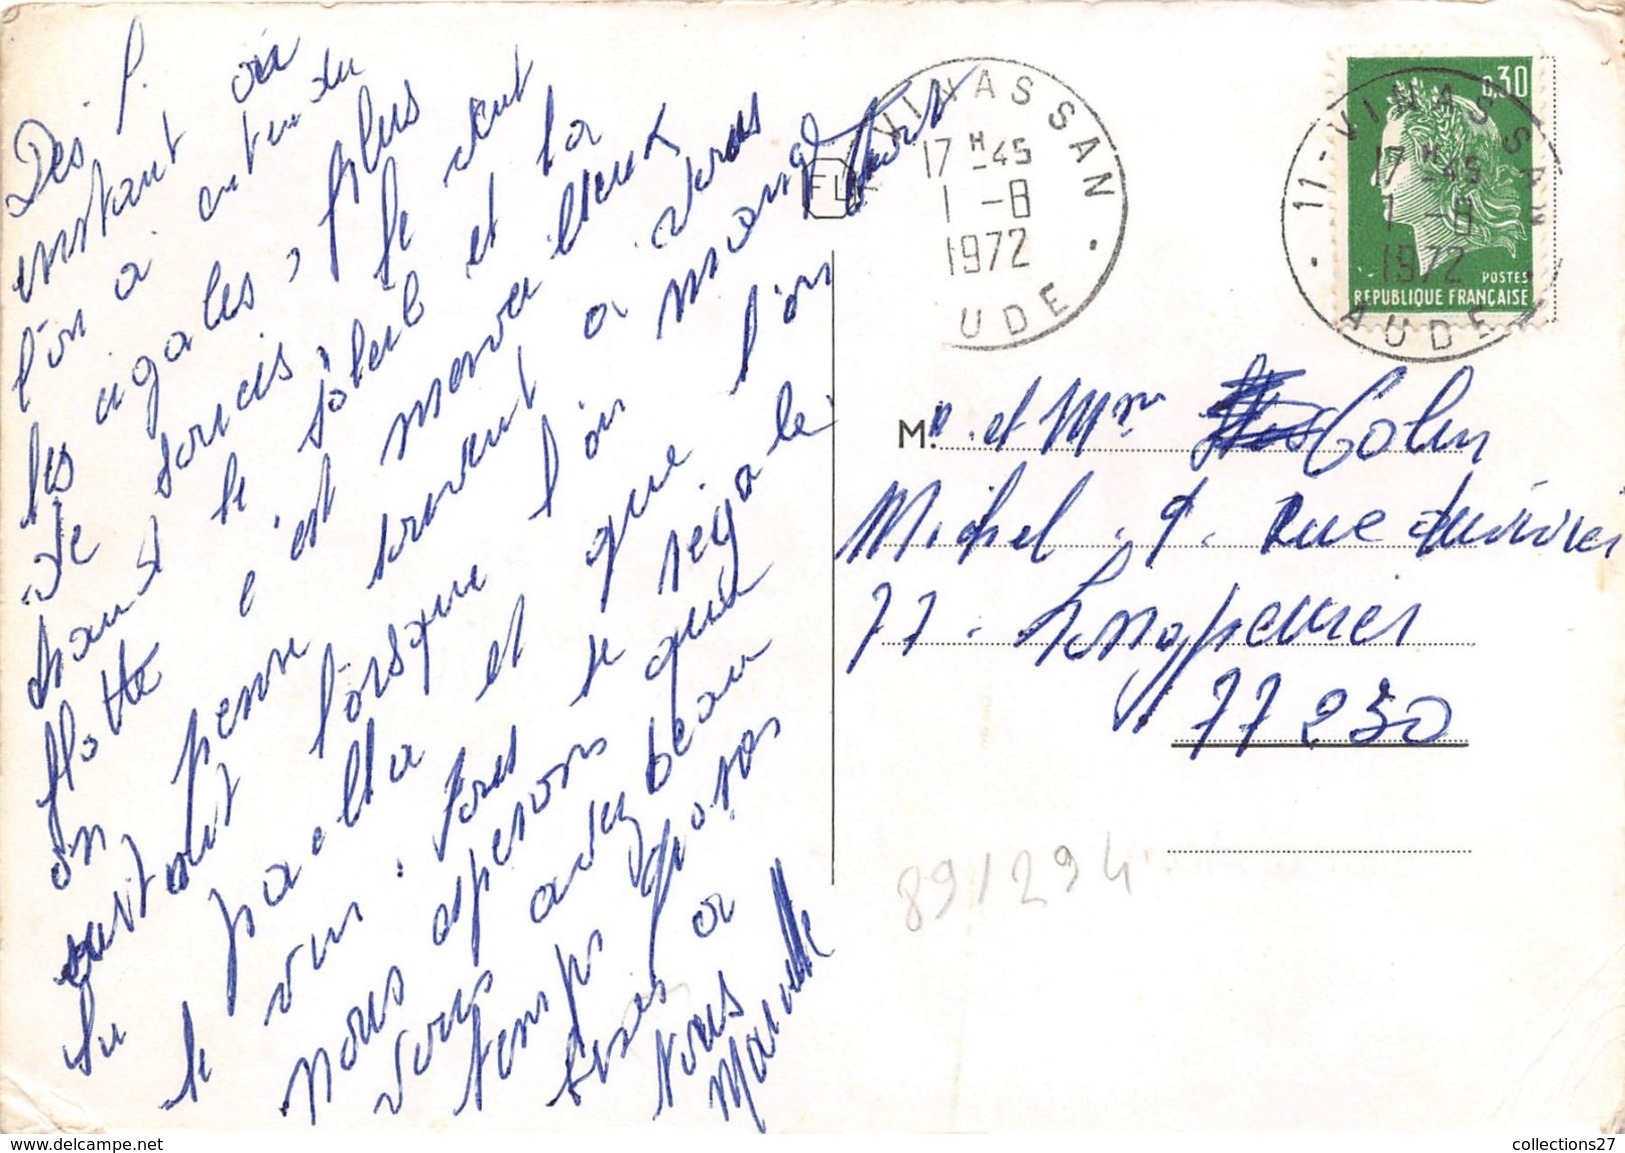 Dès l'
instant où
l'on a entendu
les cigales, plus
de soucis, le vent
chaud le soleil et la
flotte c'est merveilleux
on pense souvent a vous
surtout lorsque l'on mange
la paella et que l'on boit
le vin. tous se régale.
nous esperons que
vous avez beau
temps
Bises a
tous
Marcelle
VINASSAN
17 H -45
1 -8
1972
AUDE
0,30
POSTES
REPUBLIQUE FRANÇAISE
11-VINASSAN
17 H -45
1 -8
1972
AUDE
M. et Mme Colin
Michel. 9. Rue
77. Longperrier
77230
89/294
www.delcampe.net
collections27